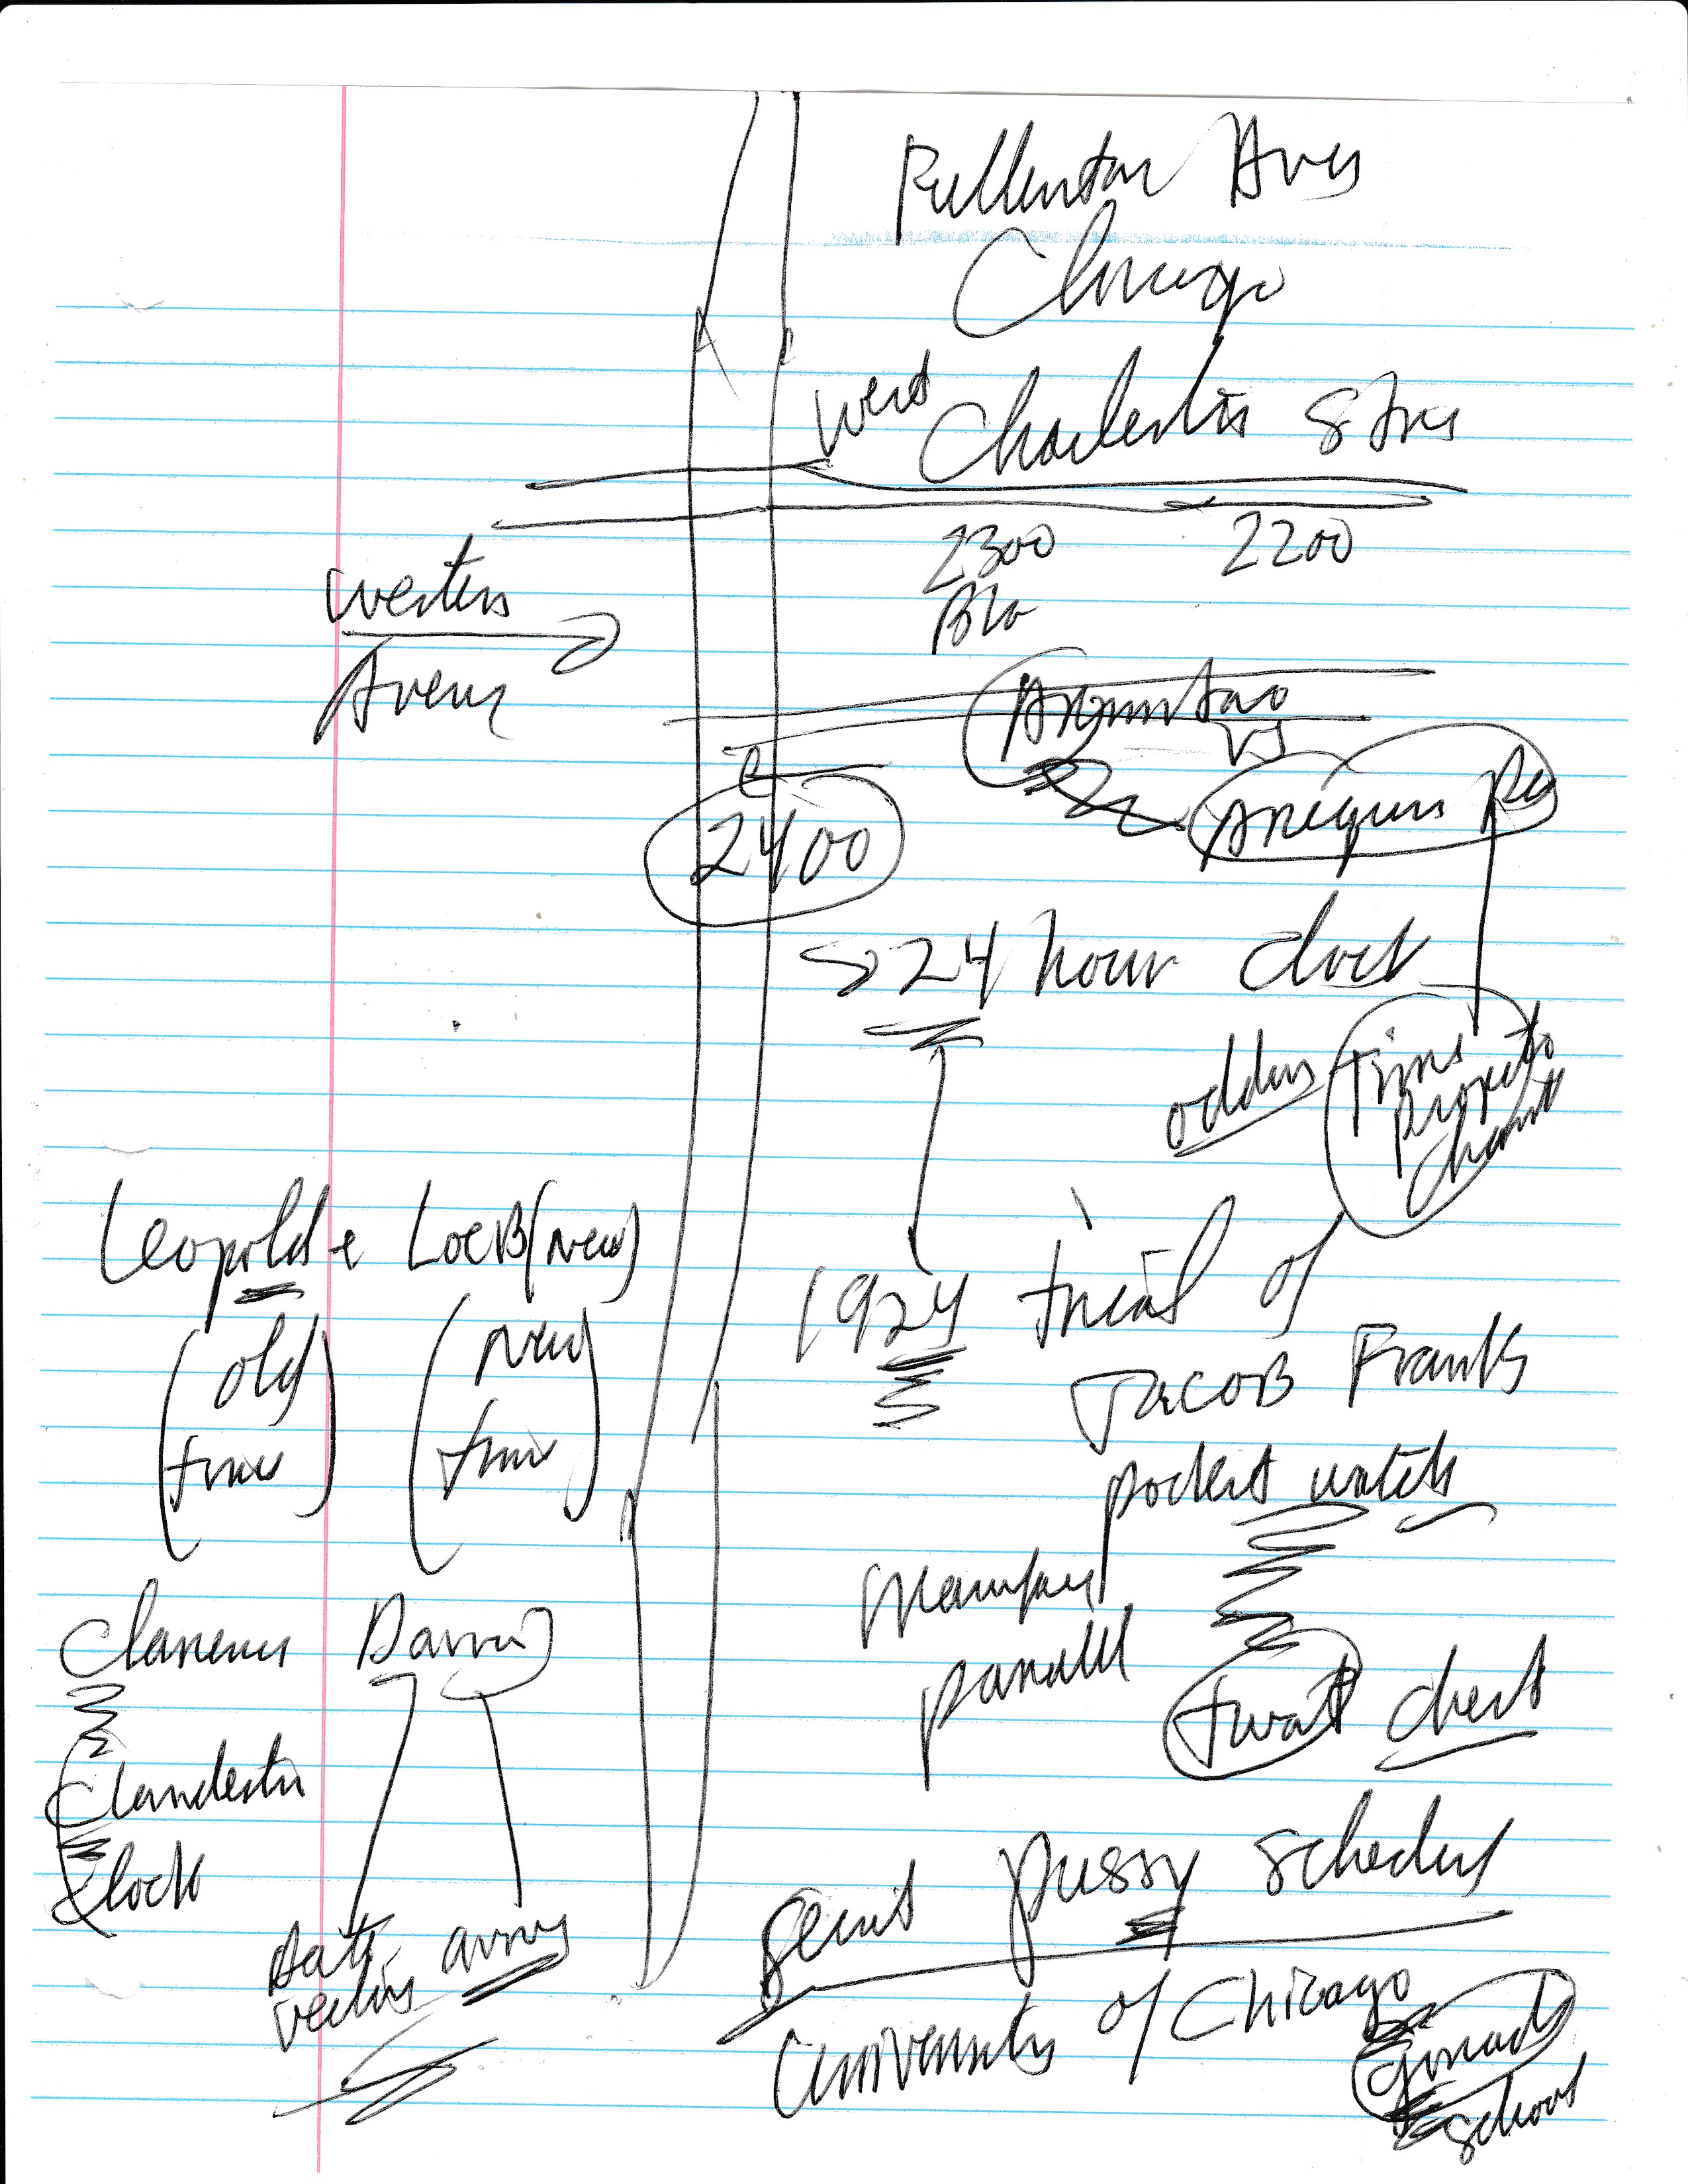 Fullerton Ave
Chicago
West Charleston Stre
2300 2200
Blo
Western
Avenu
Armitag
vs
2400
24 hour clock
odders Time
Leopold + LoeB (new)
(old time) (new time)
1924 trial of
Jacob Franks
pocket watch
parallel
twat chest
Clarence Darrow
Clandestin
Clock
Date
vectors arrow
Secret pussy schedul
University of Chicago
Gonad
School